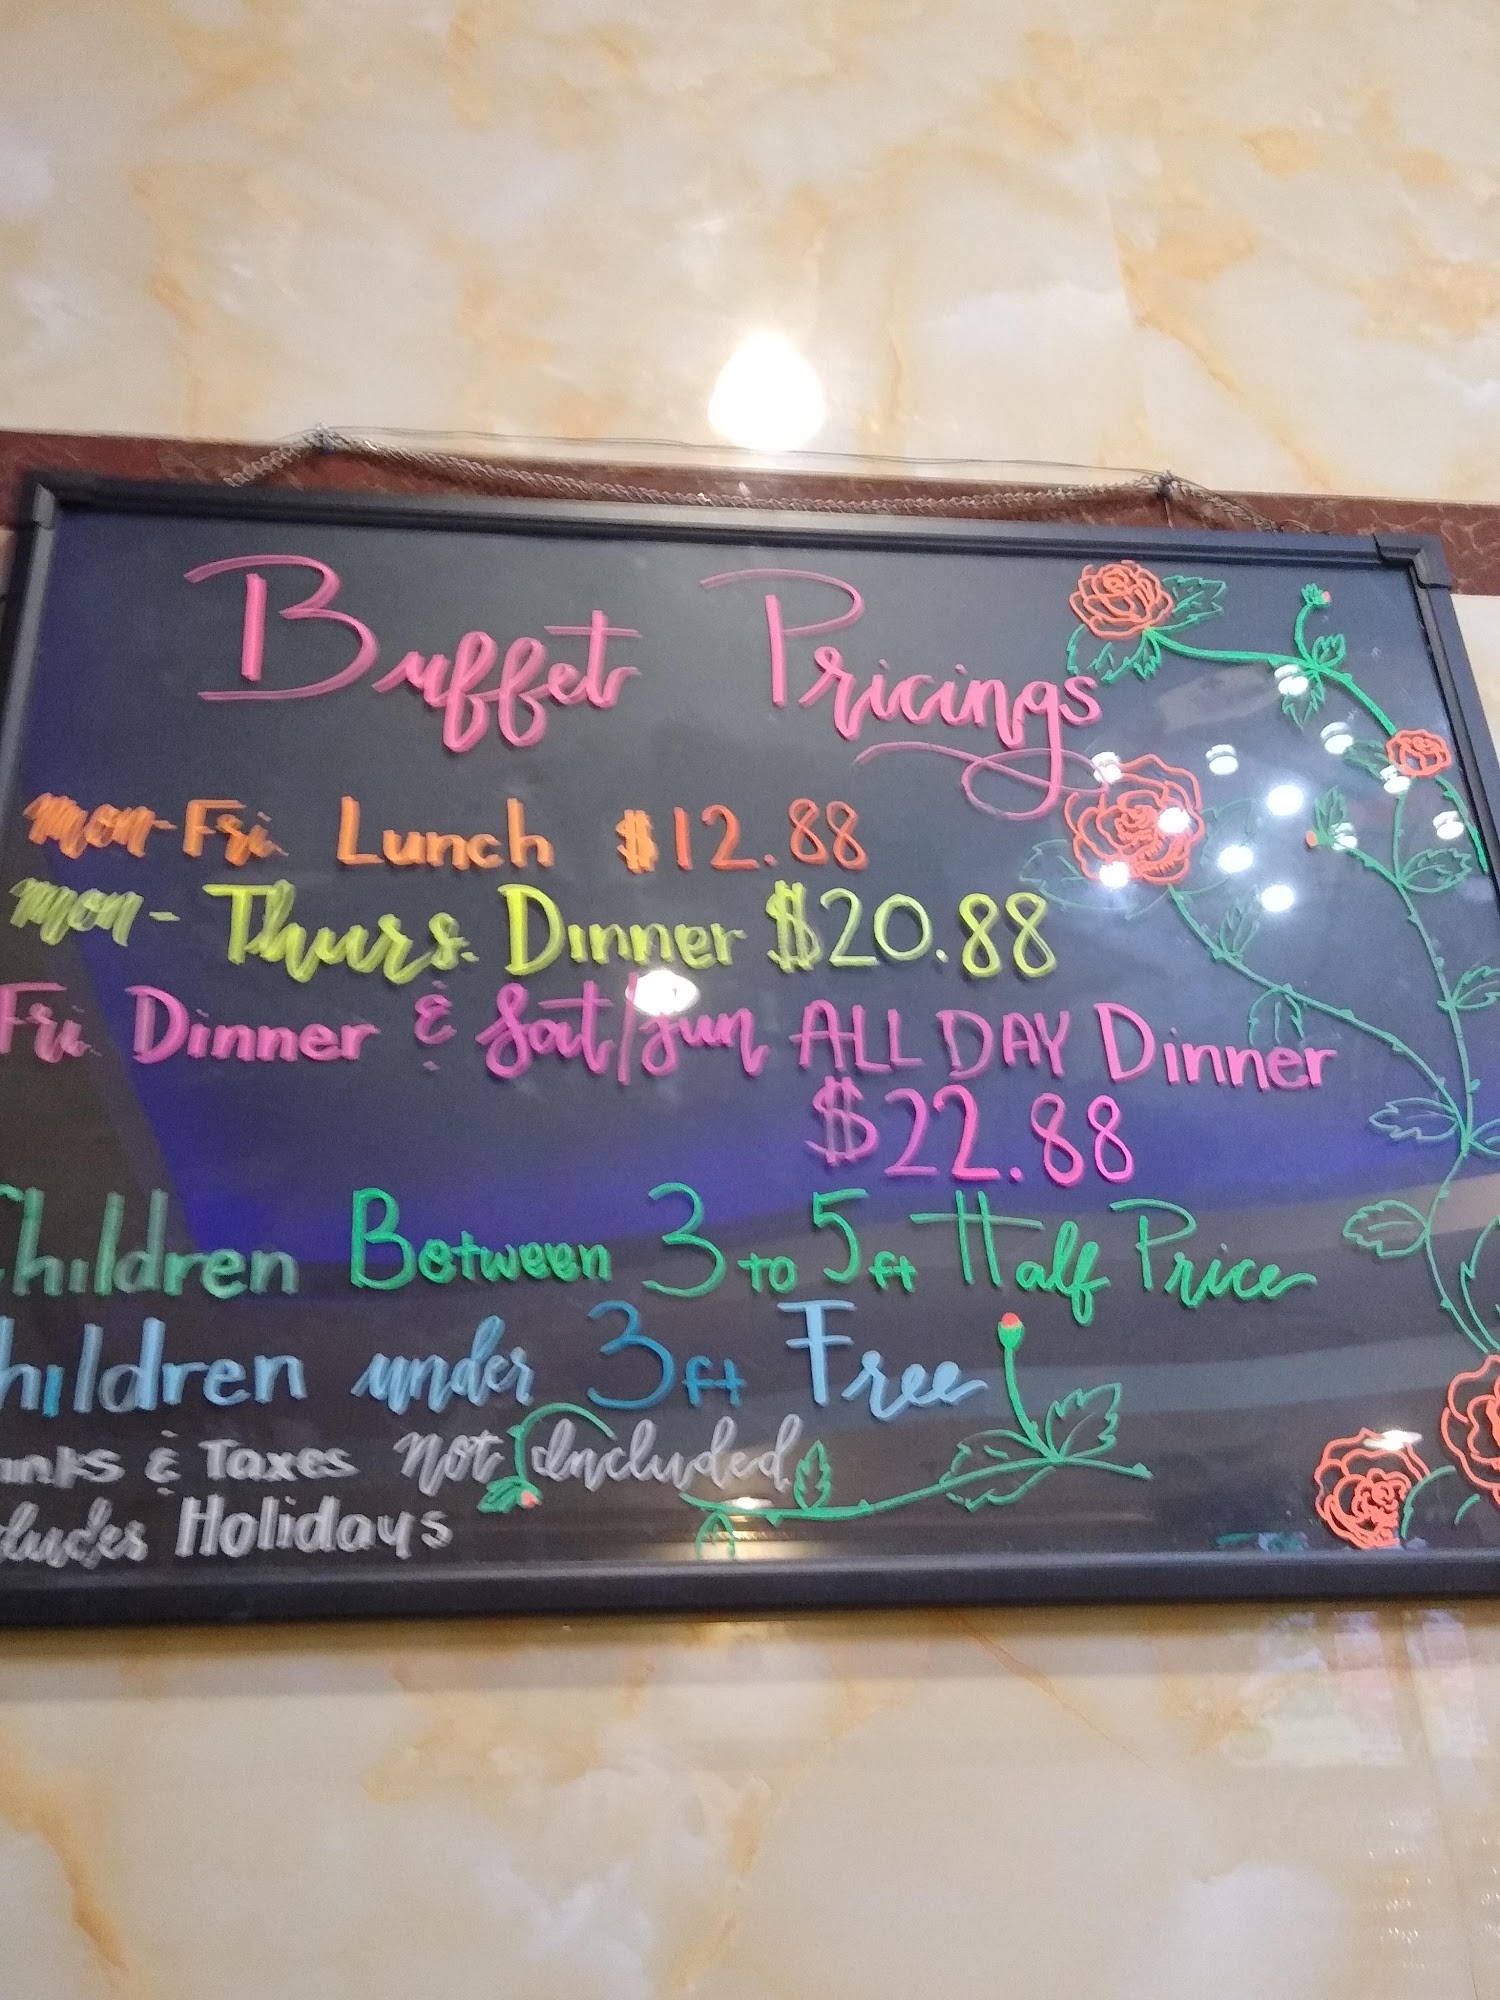 Buffet Pricings
Mon-Fri Lunch $12.88
Mon-Thurs. Dinner $20.88
Fri Dinner & Sat/Sun ALL DAY Dinner
$22.88
Children Between 3 to 5ft Half Price
hildren under 3ft Free
inks & Taxes Not Included
cludes Holidays